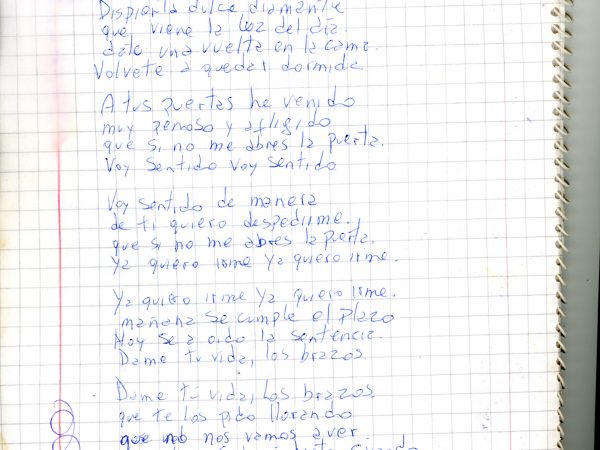 Dispierta dulce diamante
que viene la luz del día.
date una vuelta en la cama.
Volvete a quedar dormida.
A tus puertas he venido
muy penoso y afligido
que si no me abres la puerta.
Voy Sentido Voy sentido
Voy sentido de manera
de ti quiero despedirme.
que si no me abres la puerta.
Ya quiero irme Ya quiero irme.
Ya quiero irme Ya quiero irme.
mañana se cumple el plazo
Hoy se a oido la sentencia.
Dame tu vida, los brazos.
Dame tú vida, Los brazos
que te los pido llorando
que no nos vamos a ver.